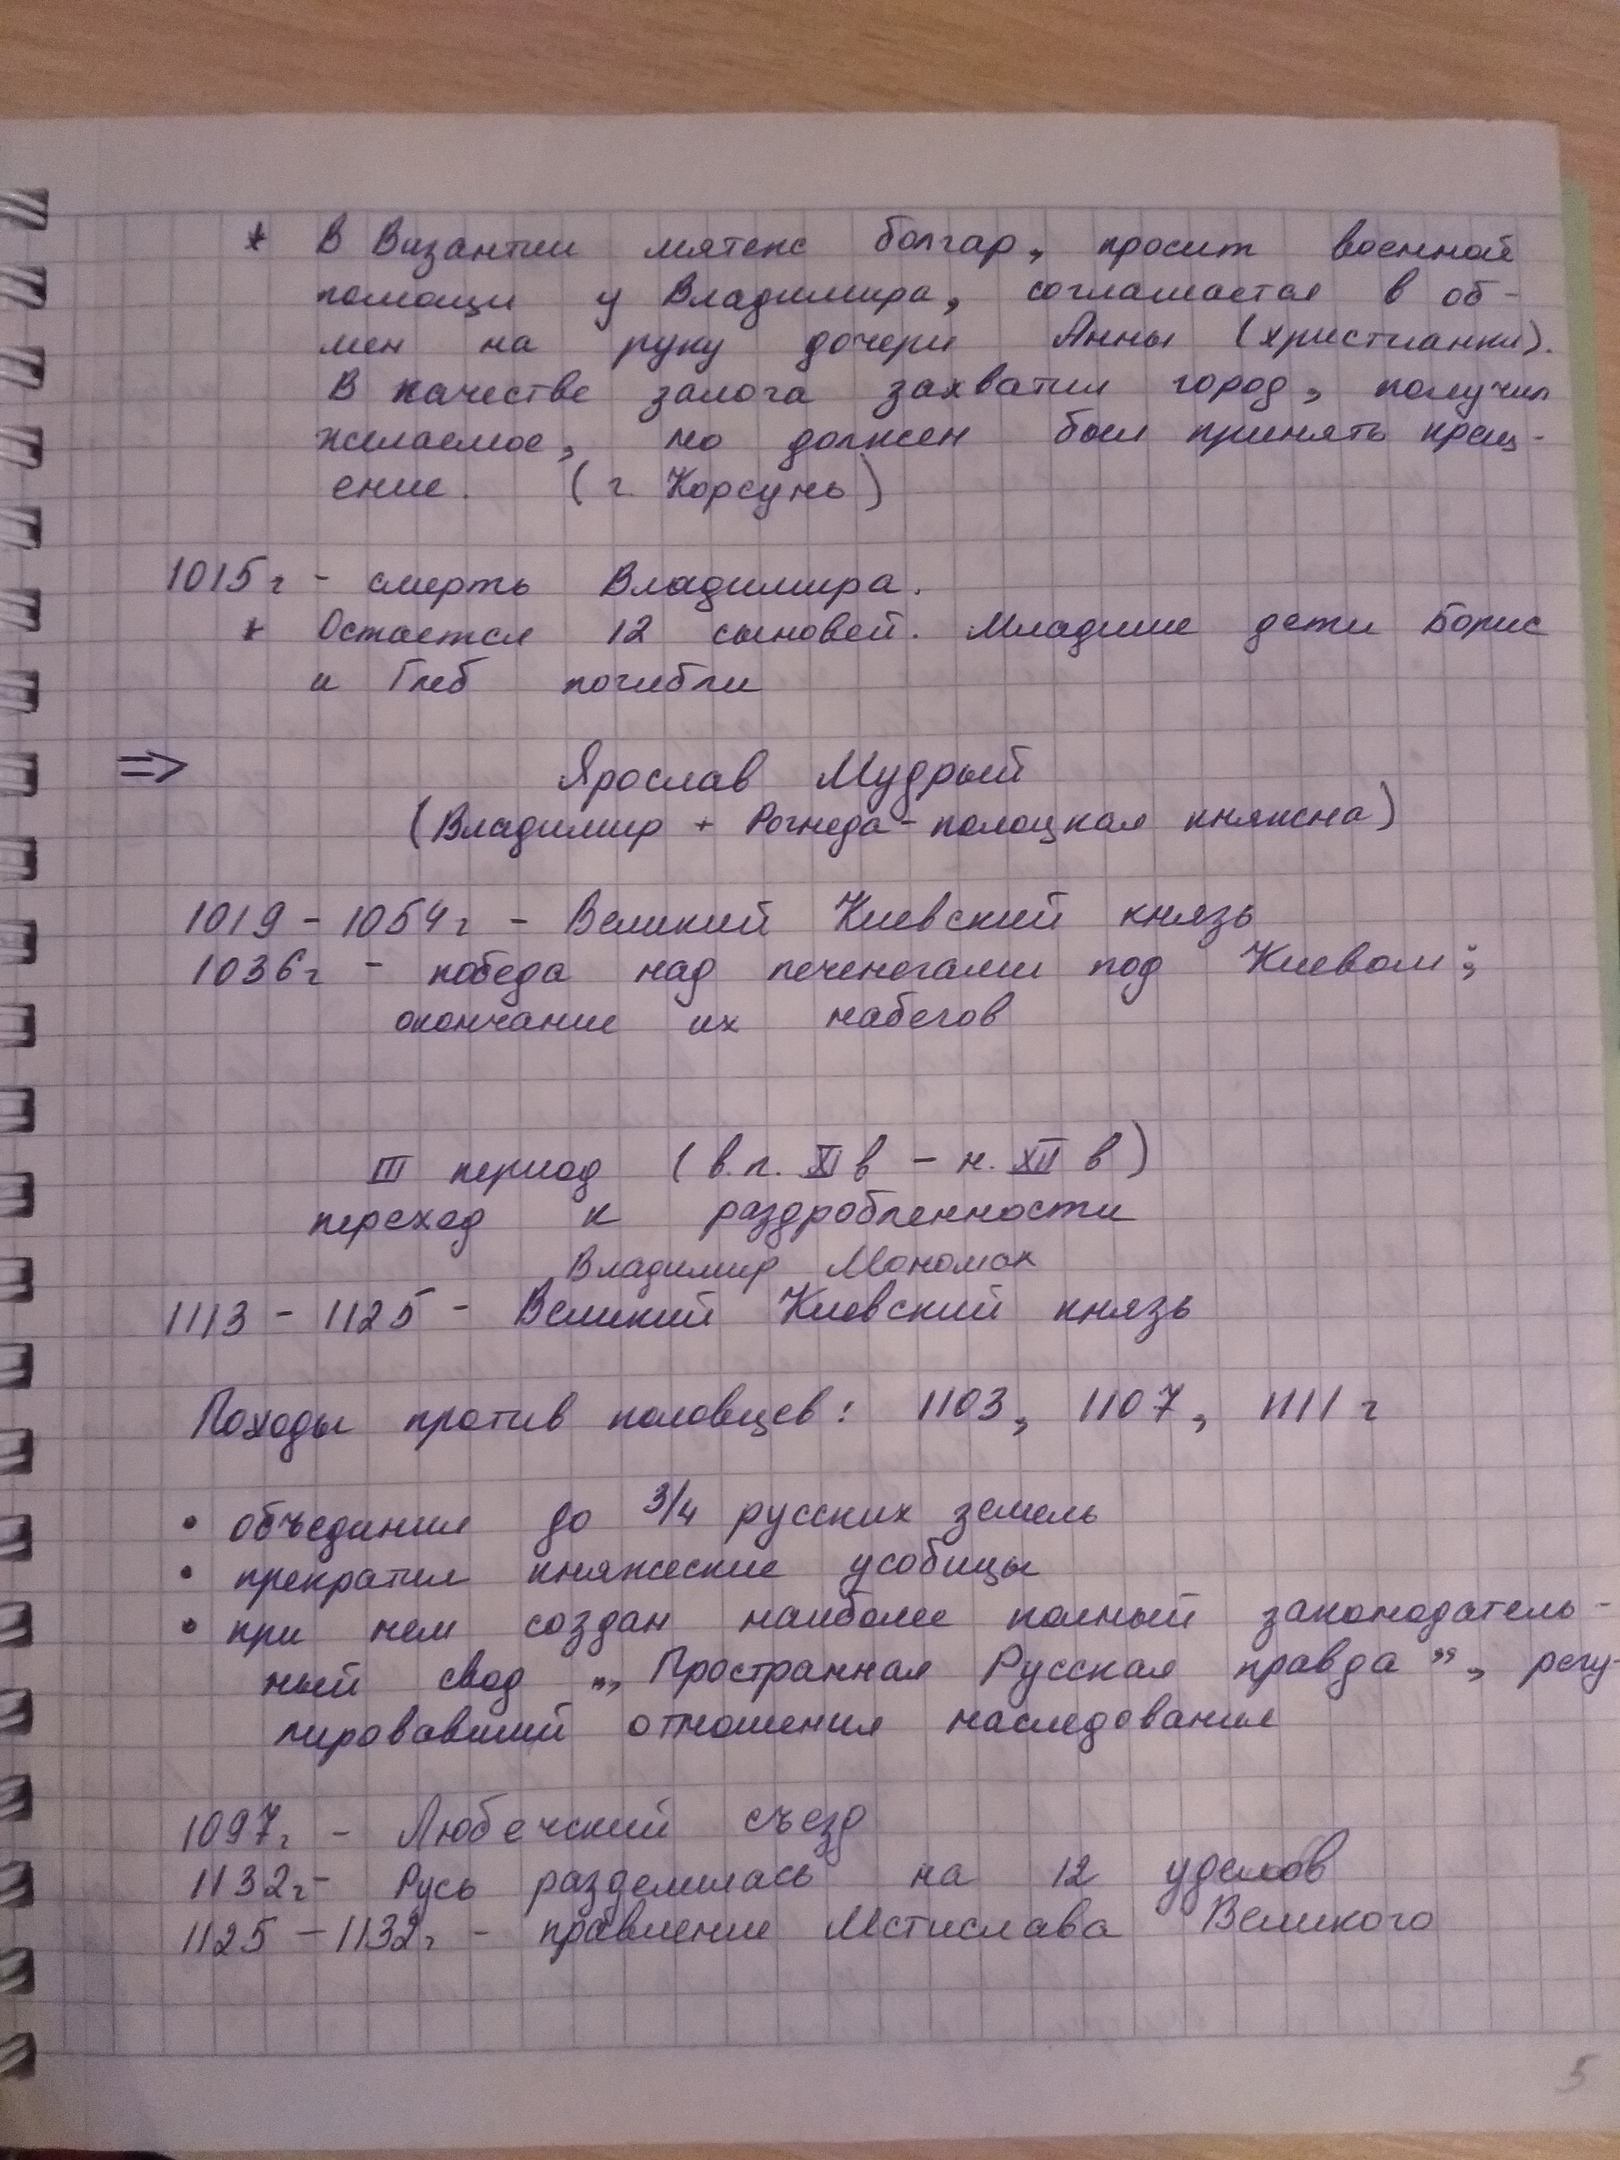 * В Византии мятеж болгар, просит военной
помощи у Владимира, соглашается в об-
мен на руку дочери Анны (христианки).
В качестве залога захватил город, получил
желаемое, но должен был принять крещ-
ение. (г. Корсунь)
1015г - смерть Владимира.
* Остается 12 сыновей. Младшие дети Борис
и Глеб погибли
=> Ярослав Мудрый
(Владимир + Рогнеда - полоцкая княжна)
1019 - 1054г - Великий Киевский князь
1036г - победа над печенегами под Киевом;
окончание их набегов
III период (в.п. XI в - н. XII в)
переход к раздробленности
Владимир Мономах
1113 - 1125 - Великий Киевский князь
Походы против половцев: 1103, 1107, 1111 г
• объединил до 3/4 русских земель
• прекратил княжеские усобицы
• при нем создан наиболее полный законодатель-
ный свод „Пространная Русская правда", регу-
лировавший отношения наследования
1097г. - Любечский съезд
1132г - Русь разделилась на 12 уделов
1125 - 1132г. - правление Мстислава Великого
5